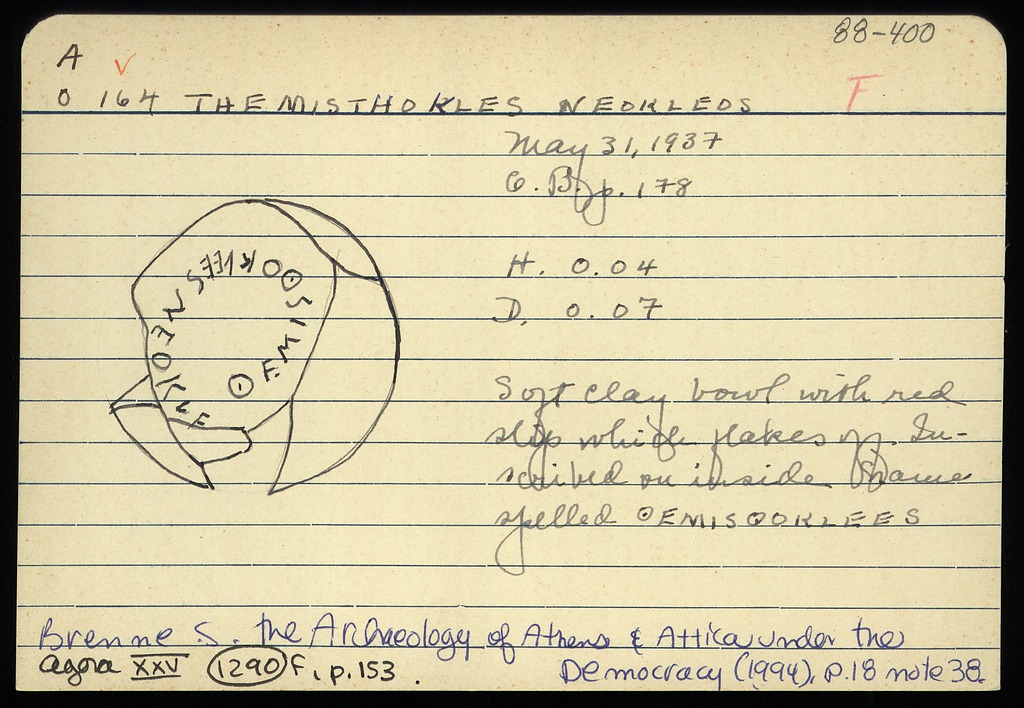 88-400
A
V
O 164 THEMISTHOKLES NEOKLEOS F
May 31, 1937
p. 178
H. 0.04
D. 0.07
ʘEMISʘOKLEES NEOKLE
Soft clay bowl with red
slip which flakes off. In-
scribed on inside. Name
spelled ʘEMISʘOKLEES
Brenne S. the Archaeology of Athens & Attica under the
Democracy (1994), p.18 note 38.
agora XXV 1290 F, p. 153.